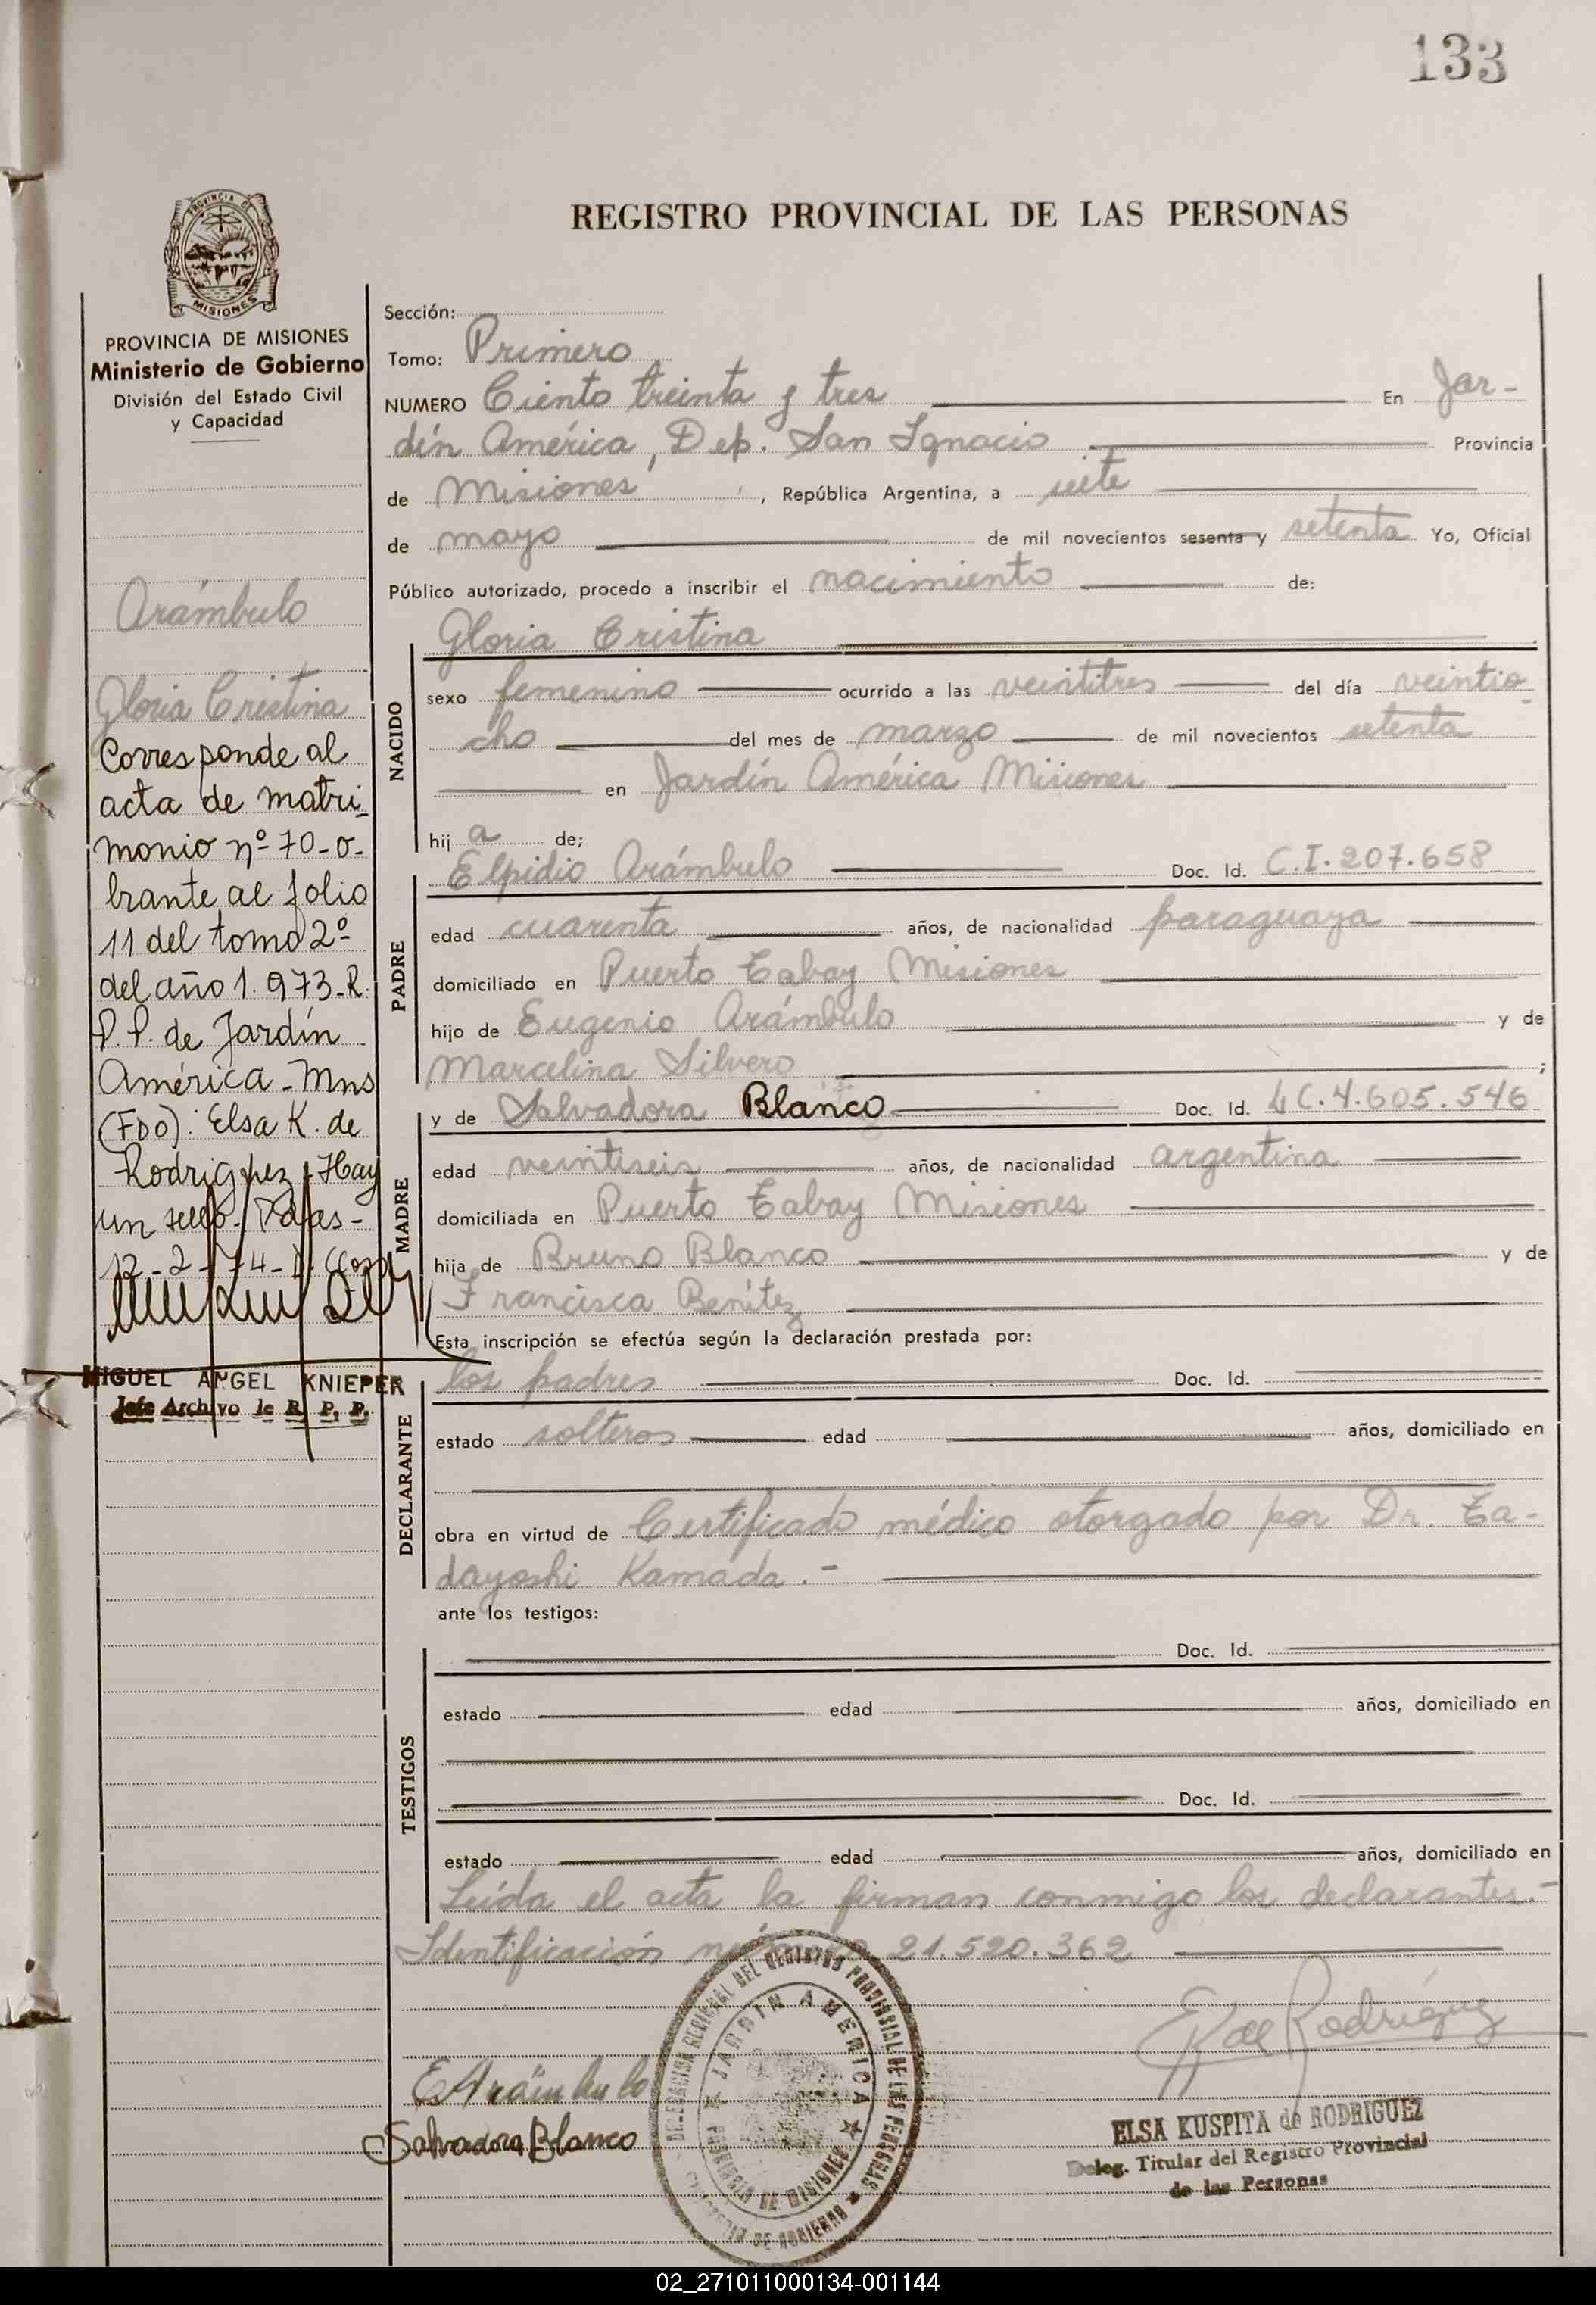 133
REGISTRO PROVINCIAL DE LAS PERSONAS
PROVINCIA DE MISIONES
Ministerio de Gobierno
División del Estado Civil
y Capacidad
Arámbulo
Gloria Cristina
Corresponde al
acta de matri-
monio nº 70-o-
brante al folio
11 del tomo 2º
del año 1.973-R.
P.P. de Jardín
América-Mns
(FDO): Elsa K. de
Rodriguez. Hay
un sello-
12-2-74-
MIGUEL ANGEL KNIEPER
Jefe Archivo de R. P. P.
Sección:
Tomo: Primero
NUMERO Ciento treinta y tres En Jar-
dín América, Dep. San Ignacio Provincia
de Misiones, República Argentina, a siete
de mayo de mil novecientos sesenta y setenta Yo, Oficial
Público autorizado, procedo a inscribir el nacimiento de:
Gloria Cristina
NACIDO
sexo femenino ocurrido a las veintitres del día veintio-
cho del mes de marzo de mil novecientos setenta
en Jardín América Misiones
hij a de;
Elpidio Arámbulo Doc. Id. C.I. 207.658
PADRE
edad cuarenta años, de nacionalidad paraguaya
domiciliado en Puerto Tabay Misiones
hijo de Eugenio Arámbulo y de
Marcelina Silvero ;
y de Salvadora Blanco Doc. Id. LC.4.605.546
MADRE
edad veintiseis años, de nacionalidad argentina
domiciliada en Puerto Tabay Misiones
hija de Bruno Blanco y de
Francisca Benítez
Esta inscripción se efectúa según la declaración prestada por:
los padres Doc. Id.
DECLARANTE
estado solteros edad años, domiciliado en
obra en virtud de Certificado médico otorgado por Dr. Ta-
dayoshi Kamada.-
ante los testigos:
Doc. Id.
TESTIGOS
estado edad años, domiciliado en
Doc. Id.
estado edad años, domiciliado en
Leída el acta la firman conmigo los declarantes.-
Identificación número 21.520.362
E Arámbulo
Salvadora Blanco
DELEGACION REGIONAL DEL REGISTRO PROVINCIAL DE LAS PERSONAS
JARDIN AMERICA
PROVINCIA DE MISIONES
E K de Rodríguez
ELSA KUSPITA de RODRIGUEZ
Deleg. Titular del Registro Provincial
de las Personas
02_271011000134-001144